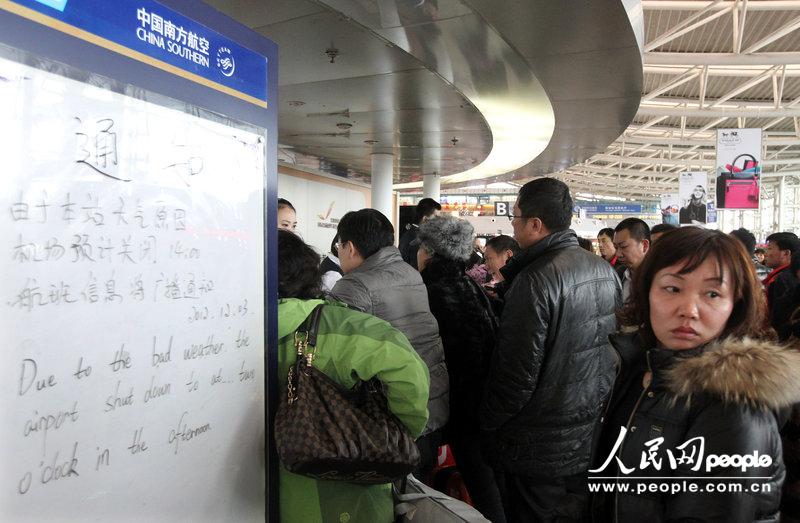 中国南方航空
CHINA SOUTHERN
通知
由于本站天气原因
机场预计关闭 14:00
航班信息将广播通知
2012.12.03.
Due to the bad weather. the
airport shut down to at.... two
o'clock in the afternoon
B
COACH
人民网 people
www.people.com.cn